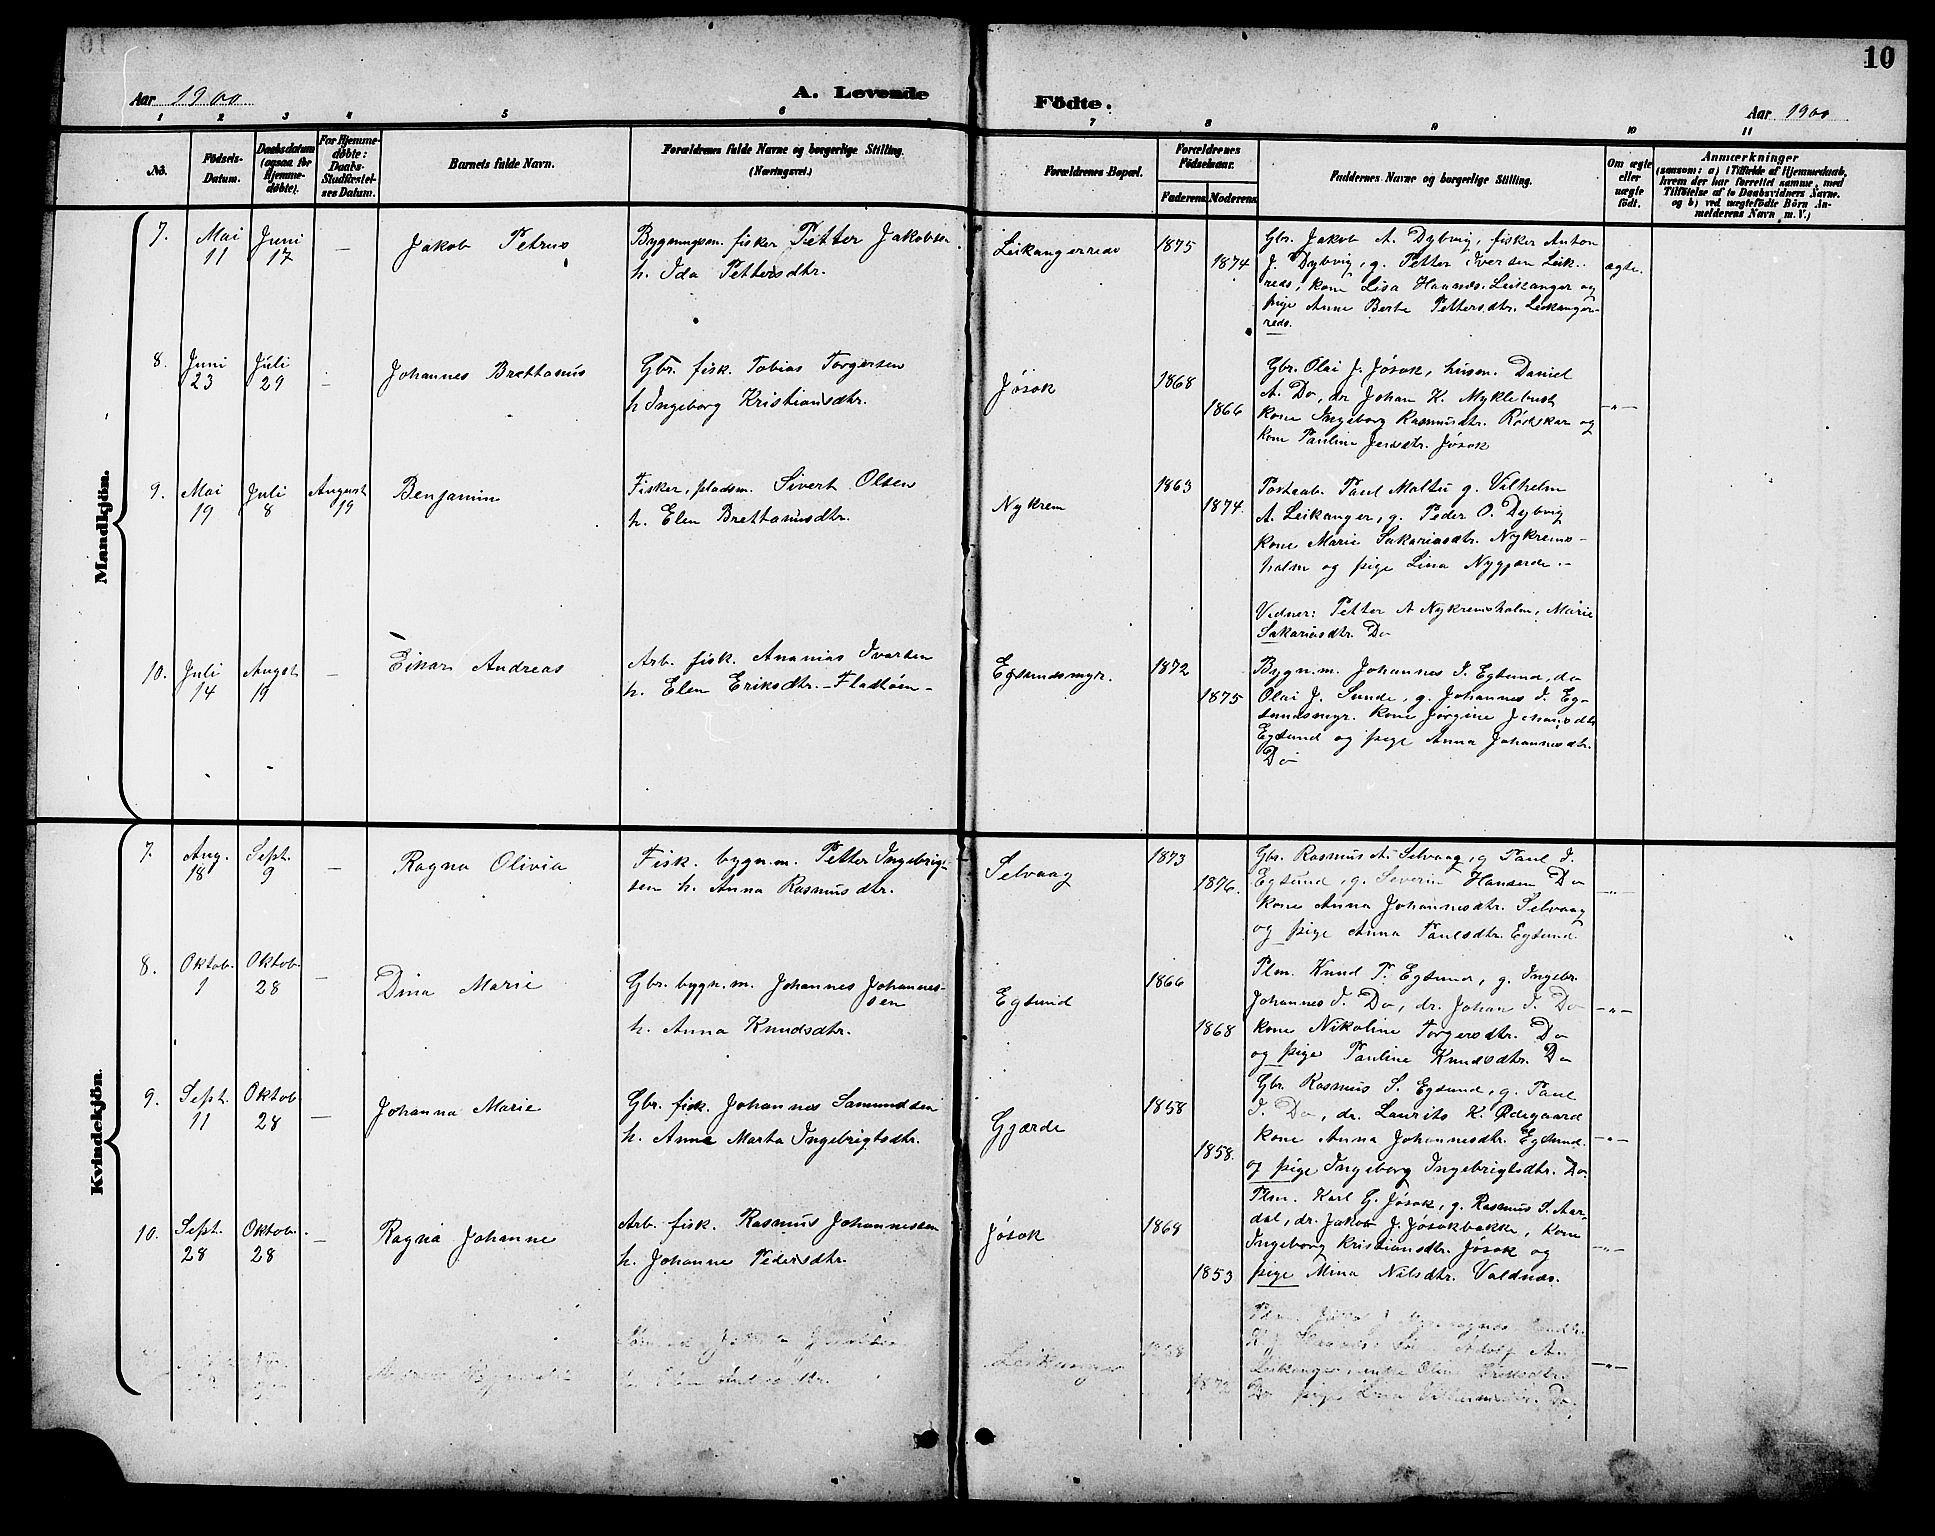 10
Aar 1900
A. Levende Födte.
Aar 1900
1 2 3 4 5 6 7 8 9 10 11
No.
Födsels-Datum.
Daabsdatum (ogsaa for Hjemmedøbte).
For Hjemmedøbte: Daabs-Stadfæstelses Datum.
Barnets fulde Navn.
Forældrenes fulde Navne og borgerlige Stilling.
(Næringsvei.)
Forældrenes Bopæl.
Forældrenes Födselsaar.
Faderens
Moderens
Faddernes Navne og borgerlige Stilling.
Om ægte eller uægte födt.
Anmærkninger
(saasom: a) i Tilfælde af Hjemmedaab, hvem der har forrettet samme, med Tilföielse af to Daabsvidners Navne, og b) ved uægtefödte Börn Anmelderens Navn m. V.)
Mandkjön.
7. Mai 11 Juni 17 –
Jakob Petrus
Bygningsm. fisker Petter Jakobsen
h. Ida Pettersdtr.
Leikangerreds
1875
1874
Gbr. Jakob A. Dybvig, fisker Anton
J. Dybvig, g. Petter Iversen Leik.
reds, kone Lisa Hansds. Leikanger og
pige Anne Berte Pettersdtr. Leikanger-
reds.
ægte.
8. Juni 23 Juli 29 –
Johannes Brettanus
Gbr. fisk. Tobias Torgersen
h Ingeborg Kristiansdtr.
Jøsok
1868
1866
Gbr. Olai J. Jøsok, husm. Daniel
A. Do, dr Johan K. Myklebust
kone Ingeborg Rasmusdtr. Røskar og
kone Pauline Jensdtr. Jøsok
–"–
9. Mai 19 Juli 8 August 19
Benjamin
Fisker, pladsm. Sivert Olsen
h. Elen Brettanusdtr.
Nykrem
1863
1874.
Postaab. Paul Maltu g. Vilhelm
A. Leikanger, g. Peder O. Dybvig
kone Marie Sakariasdtr. Nykrems-
holm og pige Lina Nygjærde.-
Vidner: Petter A Nykremsholm, Marie
Sakariasdtr. Do
10. Juli 14 August 19 –
Einar Andreas
Arb. fisk. Ananias Ivarsen
h. Elen Eriksdtr.
Egsundsmyr.
1872
1875
Bygn.m. Johannes I. Egsund, do
Olai J. Sunde, g. Johannes I. Eg-
sundsmyr. kone Jørgine Johansdtr
Egsund og pige Anna Johannesdtr.
Do
Kvindekjön.
7. Aug. 18 Sept. 9 –
Ragna Olivia
Fisk. bygn.m. Petter Ingebrigt-
sen h. Anna Rasmusdtr.
Selvaag
1873
1876.
Gbr. Rasmus A. Selvaag, g Paul I.
Egsund, g. Severin Hansen Do
kone Anna Johannesdtr. Selvaag
og pige Anna Paulsdtr. Egsund.
–"–
8. Oktob. 1 Oktob. 28 –
Dina Marie
Gbr. bygn.m. Johannes Johannes-
sen
h. Anna Knudsdtr.
Egsund
1866
1868
Plm. Knud P. Egsund, g. Ingebr.
Johannes I. Do, dr. Johan I. Do
kone Nikoline Torgersdtr. Do
og pige Pauline Knudsdtr. Do
–"–
9. Sept. 11 Oktob 28 –
Johanna Marie
Gbr. fisk. Johannes Samundsen
h. Anne Marta Ingebrigtsdtr.
Gjærde
1858
1858.
Gbr. Rasmus S. Egsund, g. Paul
I. Do, dr. Laurits K. Ødegaard
kone Anna Johannesdtr. Egsund.
og pige Ingeborg Ingebrigtsdtr. Do.
–"–
10. Sept. 28 Oktob. 28 –
Ragna Johanne
Arb. fisk. Rasmus Johannessen
h. Johanne Pedersdtr.
Jøsok
1868
1853
Plm. Karl G. Jøsok, g. Rasmus S. Aar-
dal, dr. Jakob J. Jøsokbakke, kone
Ingeborg Kristiansdtr. Jøsok og
pige Mina Nilsdtr. Valdnes.
–"–
Leikanger
Leikanger,
Do pige Lina
–"–